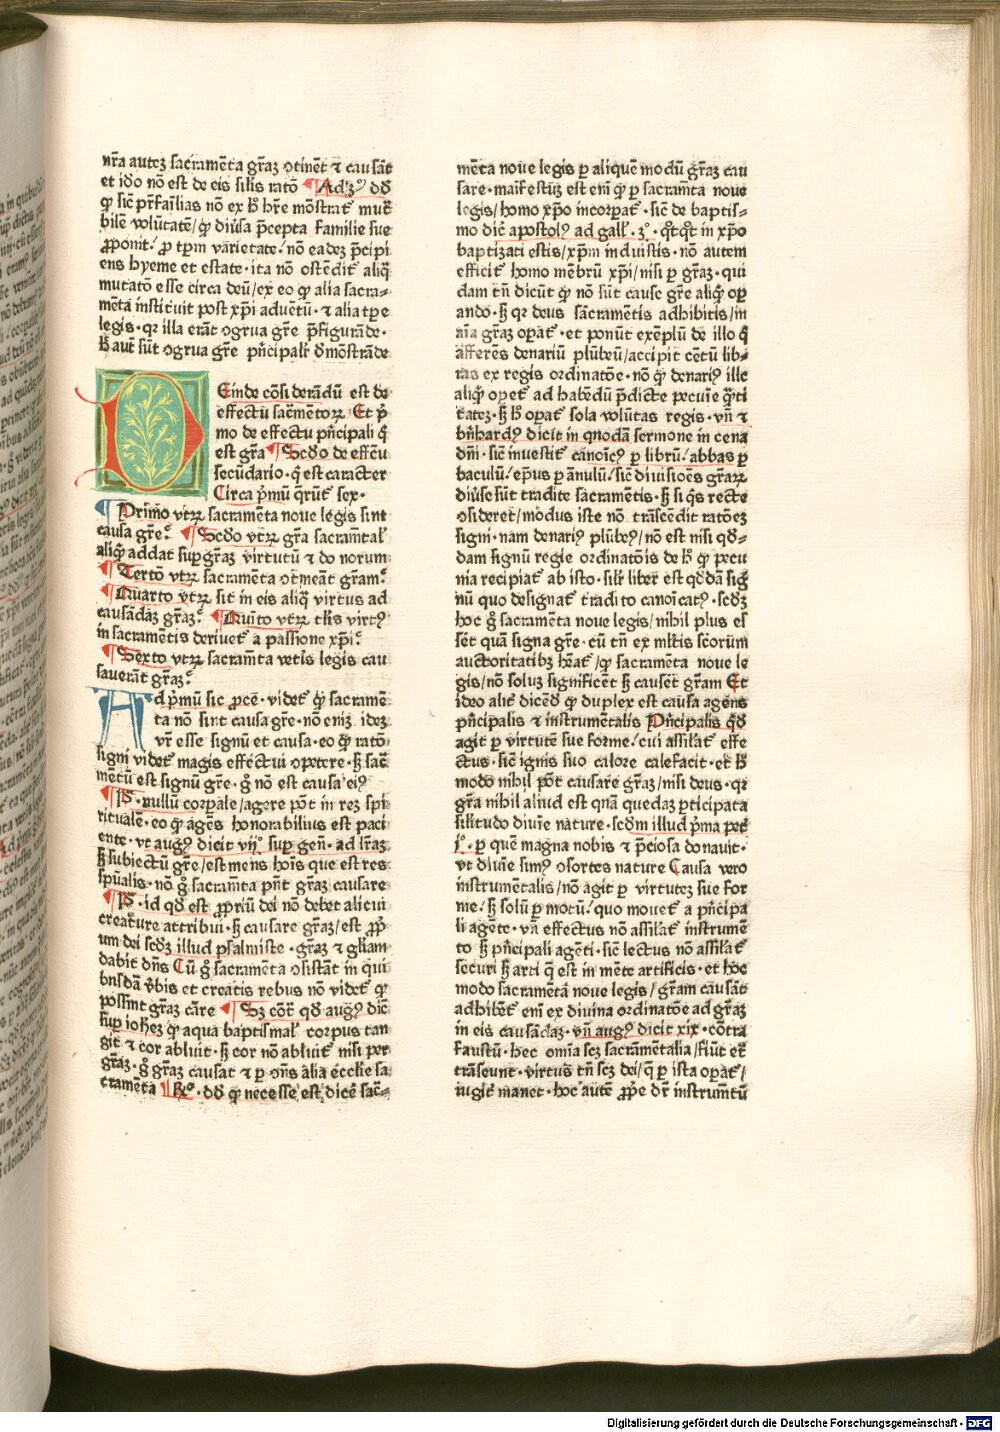 nr̃a autez sacramēta gr̃az ↄtinēt ⁊ causāt
et iđo nō est de eis silis ratō ¶ Ad 3ꝰ dđ
ꝙ sic̄ pr̃fāilias nō ex ħ hr̃e mōstrat̃ mut̃
bilē volūtatē/ꝙ diuersa p̄cepta familie sue
ꝓponit: ꝓ tp̄m varietate· nō eadez p̄cipi
ens hyeme et estate· ita nō ostēdit̃ aliq̄
mutatō esse circa deū/ex eo ꝙ alia sacra⸗
mēta instituit post xp̄i aduētū· ⁊ alia tp̄e
legis· qr illa erāt ↄgrua gr̃e p̄figurāde·
ħ aut̃ sūt ↄgrua gr̃e pn̄cipalr̃ dmōstrāde
Deinde cōsiderādū est de
effectu sac̄mētoꝝ Et p̄
mo de effectu pn̄cipali q̄
est gr̃a ¶ Scđo de effc̄u
secūdario· q̄ est caracter
Circa p̄mū q̄rūt̃ sex·
¶ Primo vtꝝ sacramēta noue legis sint
causa gr̃e: ¶ Scđo vtꝝ gr̃a sacram̄tal̃
aliqd̃ addat sup gr̃az virtutū ⁊ donorum
¶ Tertō vtꝝ sacramēta ↄtineāt gr̃am:
¶ Quarto vtꝝ sit in eis aliq̄ virtus ad
causādaz gr̃az: ¶ Quīto vtꝝ tl̃is virtꝰ
in sacramētis deriuet̃ a passione xp̄i:
¶ Sexto vtꝝ sacram̄ta vetis legis cau
sauerāt gr̃az:
Ad p̄mū sic ꝓcē· videt̃ ꝙ sacramē
ta nō sint causa gr̃e· nō eniz idez
vr̃ esse signū et causa· eo ꝙ ratō
signi videt̃ magis effectui ↄpetere· ꝫ sac̃
mētū est signū gr̃e· g̊ nō est causa eiꝰ
¶ P̃· nullū corpale/agere pōt in rez spi
rituale· eo ꝙ agēs honorabilius est paci
ente· vt augꝰ dicit vij· sup gen̄· ad lr̃az
ꝫ subiectū gr̃e/est mens hoīs que est res
sp̄ualis· nō g̊ sacram̄ta pn̄t gr̃az causare
¶ P̃· id qđ est ꝓpriū dei nō debet alicui
creature attribui· ꝫ causare gr̃az/est ꝓp̃
um dei scđz illud psalmiste· gr̃az ⁊ gl̃iam
dabit dn̄s Cū g̊ sacramēta ↄsistāt in qui
busdā v̄bis et creatis rebus nō videt̃ ꝙ
possint gr̃az cāre ¶ Sꝫ cōr̃ qđ augꝰ dic̄
sup ioħez ꝙ aqua baptismal̃ corpus tan
git ⁊ cor abluit· ꝫ cor nō abluit̃ nisi per
gr̃az· g̊ gr̃az causat ⁊ p ↄn̄s alia eccl̃ie sa
cramēta ¶ Rn̄o· dđ ꝙ necesse est dicē sac̃⸗
mēta noue legis p aliquē modū gr̃az cau
sare· maifestūz est em̄ ꝙ p sacram̄ta noue
legis/homo xp̄o incorpat̃· sic̄ de baptis⸗
mo dic̄ apostolꝰ ad gall̃· 3ꝰ· q̄tq̄t in xp̄o
baptizati estis/xp̄m induistis· nō autem
efficit̃ homo mēbrū xp̄i/nisi p gr̃az· qui
dam tn̄ dicūt ꝙ nō sūt cause gr̃e aliqd̃ oꝑ
ando· ꝫ qr deus sacramētis adhibitis/in
aīa gr̃az oꝑat̃· et ponūt exēplū de illo q̄
afferēs denariū plūbeū/accipit cētū lib⸗
ras ex regis ordinatōe· nō ꝙ denariꝰ ille
aliqd̃ oꝑet̃ ad habēdū p̄dicte pecuīe q̄ti
tatez· ꝫ ħ oꝑat̃ sola volūtas regis· vn̄ ⁊
bn̄hardꝰ dicit in qnodā sermone in cena
dn̄i· sic̄ inuestit̃ canōicꝰ p librū: abbas p
baculū: ep̄us p anulū: sic̄ diuisiōes gr̃aꝝ
diūse sūt tradite sacramētis· ꝫ si q̄s recte
ↄsideret/modus iste nō trāscēdit ratōez
signi· nam denariꝰ plūbeꝰ/nō est nisi qđ⸗
dam signū regie ordinatōis de ħ ꝙ pecu
nia recipiat̃ ab isto· silr̃ liber est qđdā sig̃
nū quo designat̃ traditio canōicatꝰ· scđz
hoc g̊ sacramēta noue legis/nihil plus es
sēt quā signa gr̃e· cū tn̄ ex ml̃tis sc̄orūm
auctoritatibꝫ ħeat̃/ꝙ sacramēta noue le
gis/nō soluz significēt ꝫ causēt gr̃am Et
ideo alit̃ dicēđ ꝙ duplex est causa agens
pn̄cipalis ⁊ instrumētalis Pn̄cipalis q̄đ
agit p virtutē sue forme: cui assilat̃ effe
ctus· sic̄ ignis suo calore calefacit· et ħ
modo nihil pōt causare gr̃az/nisi deus· qr
gr̃a nihil aliud est quā quedaz pticipata
silitudo diuīe nature· scđm illud p̄ma pet̃
ſ̊· p quē magna nobis ⁊ p̄ciosa donauit·
vt diuīe simꝰ ↄsortes nature Causa vero
instrumētalis/nō agit p virtutez sue for
me: ꝫ solū p motū: quo mouet̃ a pn̄cipa
li agēte· vn̄ effectus nō assilat̃ instrumē
to ꝫ pn̄cipali agēti· sic̄ lectus nō assilat̃
securi ꝫ arti q̄ est in mēte artificis· et hoc
modo sacramēta noue legis/gr̃am causāt
adhibēt̃ em̄ ex diuina ordinatōe ad gr̃az
in eis causādaz· vn̄ augꝰ dicit xix· cōtra
faustū· hec omīa scz sacram̄ētalia/fiūt et
trāseunt· virtus tn̄ scz dei/q̄ p ista oꝑat̃/
iugit̃ manet· hoc autē ꝓp̄e dr̃ instrum̄tū
Digitalisierung gefördert durch die Deutsche Forschungsgemeinschaft · DFG